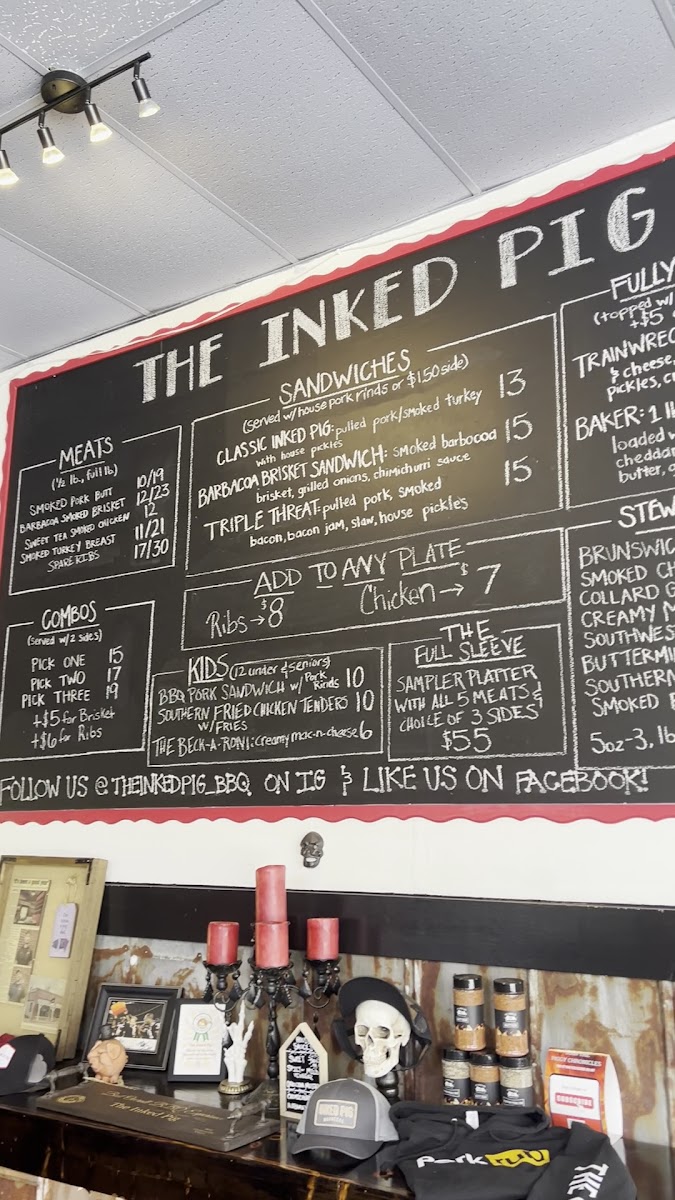 THE INKED PIG
MEATS
(½ lb., full lb.)
SMOKED PORK BUTT 10/19
BARBACOA SMOKED BRISKET 12/23
SWEET TEA SMOKED CHICKEN 12
SMOKED TURKEY BREAST 11/21
SPARE RIBS 17/30
COMBOS
(served w/ 2 sides)
PICK ONE 15
PICK TWO 17
PICK THREE 19
+$5 for Brisket
+$6 for Ribs
SANDWICHES
(served w/house pork rinds or $1.50 side)
CLASSIC INKED PIG: pulled pork/smoked turkey 13
with house pickles
BARBACOA BRISKET SANDWICH: smoked barbocoa 15
brisket, grilled onions, chimichurri sauce
TRIPLE THREAT: pulled pork, smoked 15
bacon, bacon jam, slaw, house pickles
ADD TO ANY PLATE
Ribs → $8 Chicken → $7
KIDS (12 under & seniors)
BBQ PORK SANDWICH w/ Pork Rinds 10
SOUTHERN FRIED CHICKEN TENDERS 10
W/ FRIES
THE BECK-A-RONI: creamy mac-n-cheese 6
THE
FULL SLEEVE
SAMPLER PLATTER
WITH ALL 5 MEATS &
CHOICE OF 3 SIDES
$55
FULLY
(topped w/
+$5
TRAINWREC
& cheese,
pickles, c
BAKER: 1 l
loaded w
cheddar
butter,
STEW
BRUNSWIC
SMOKED CH
COLLARD G
CREAMY M
SOUTHWES
BUTTERMI
SOUTHERN
SMOKED
5oz-3, lb
FOLLOW US @THEINKEDPIG_BBQ ON IG & LIKE US ON FACEBOOK!
The Inked Pig
INKED PIG
PIGGY CHRONICLES
SUBSCRIBE
Pork
THE